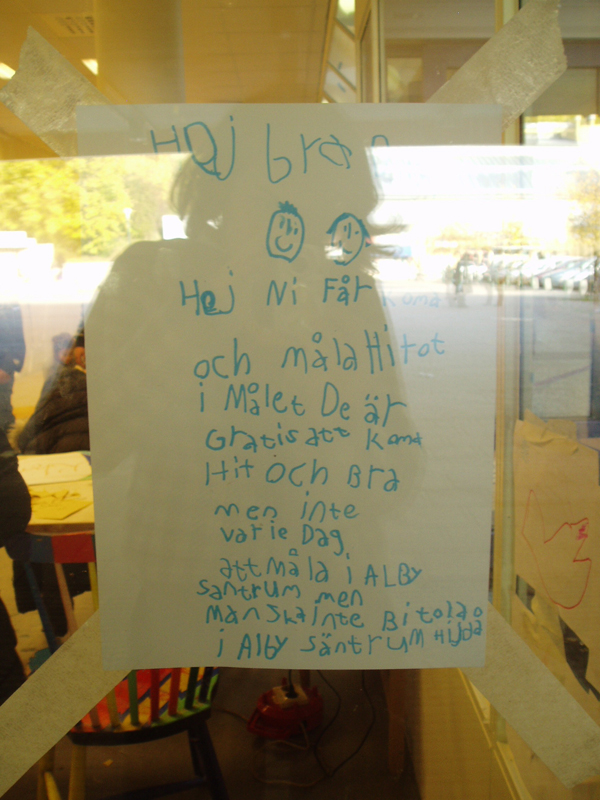 Haj bra
Hej Ni Får Koma
och måla Hitot
i Målet De är
Gratis att Koma
Hit och Bra
men inte
varie Dag
att måla i ALBY
santrum men
man ska inte Bitolao
i Alby säntrum Hijda